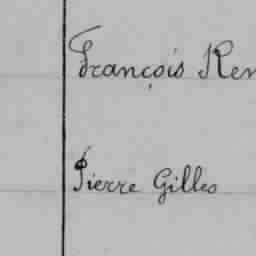 François Ren
Pierre Gilles